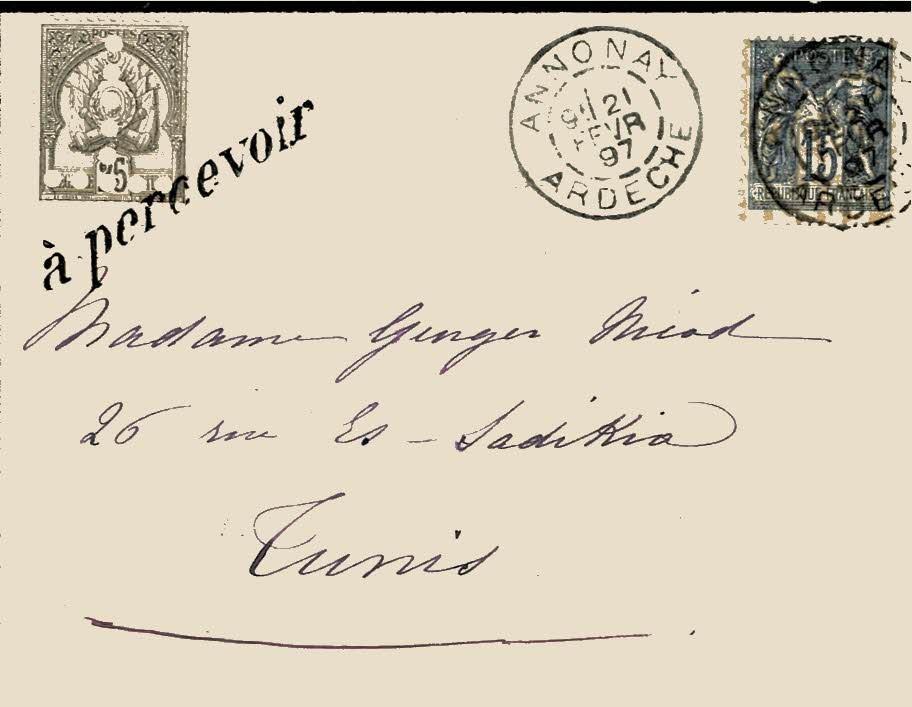 POSTES
75
à percevoir
ANNONAY
21
FEVR
97
ARDECHE
POSTE
15
97
REPUBLIQUE FRANCAISE
Madame Genger Miod
26 rue Es-Sadikia
Tunis